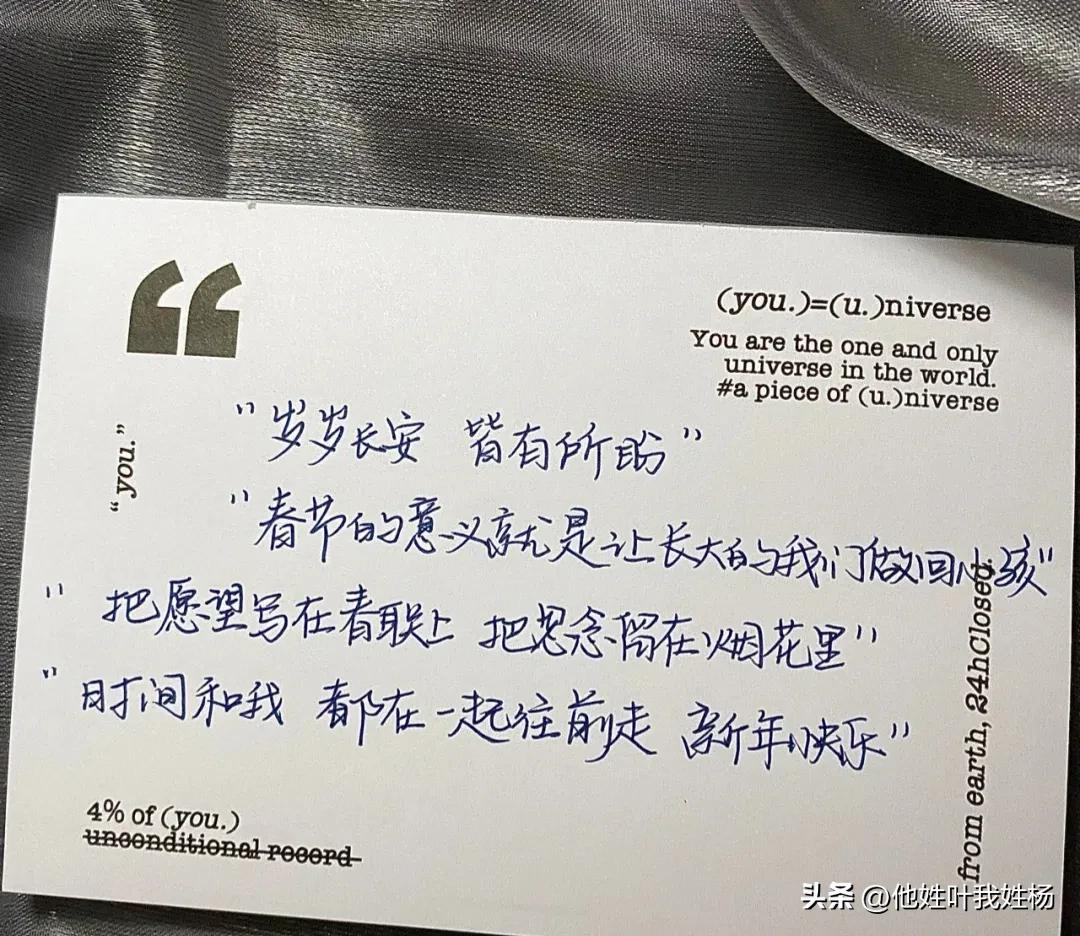 (you.)=(u.)niverse
You are the one and only
universe in the world.
#a piece of (u.)niverse
“you.”
"岁岁长安 皆有所盼"
"春节的意义就是让长大的我们做回小孩"
"把愿望写在春联上 把思念留在烟花里"
"时间和我 都在一起往前走 新年快乐"
from earth, 24hClosed.
4% of (you.)
unconditional record
头条 @他姓叶我姓杨